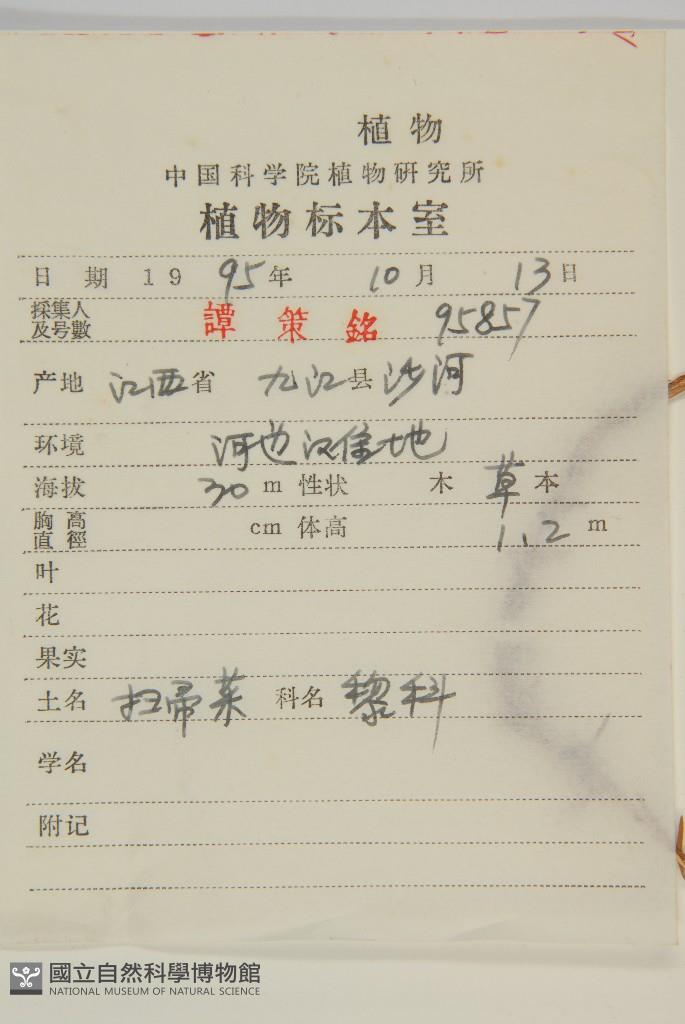 植物
中国科学院植物研究所
植物标本室
日期 1995年 10月 13日
採集人及号數 譚策銘 95857
产地 江西省 九江县 沙河
环境 河边沉佳地
海拔 30 m 性状 木 草 本
胸高直徑 cm 体高 1.2 m
叶
花
果实
土名 扫帚菜 科名 黎科
学名
附记
國立自然科學博物館
NATIONAL MUSEUM OF NATURAL SCIENCE